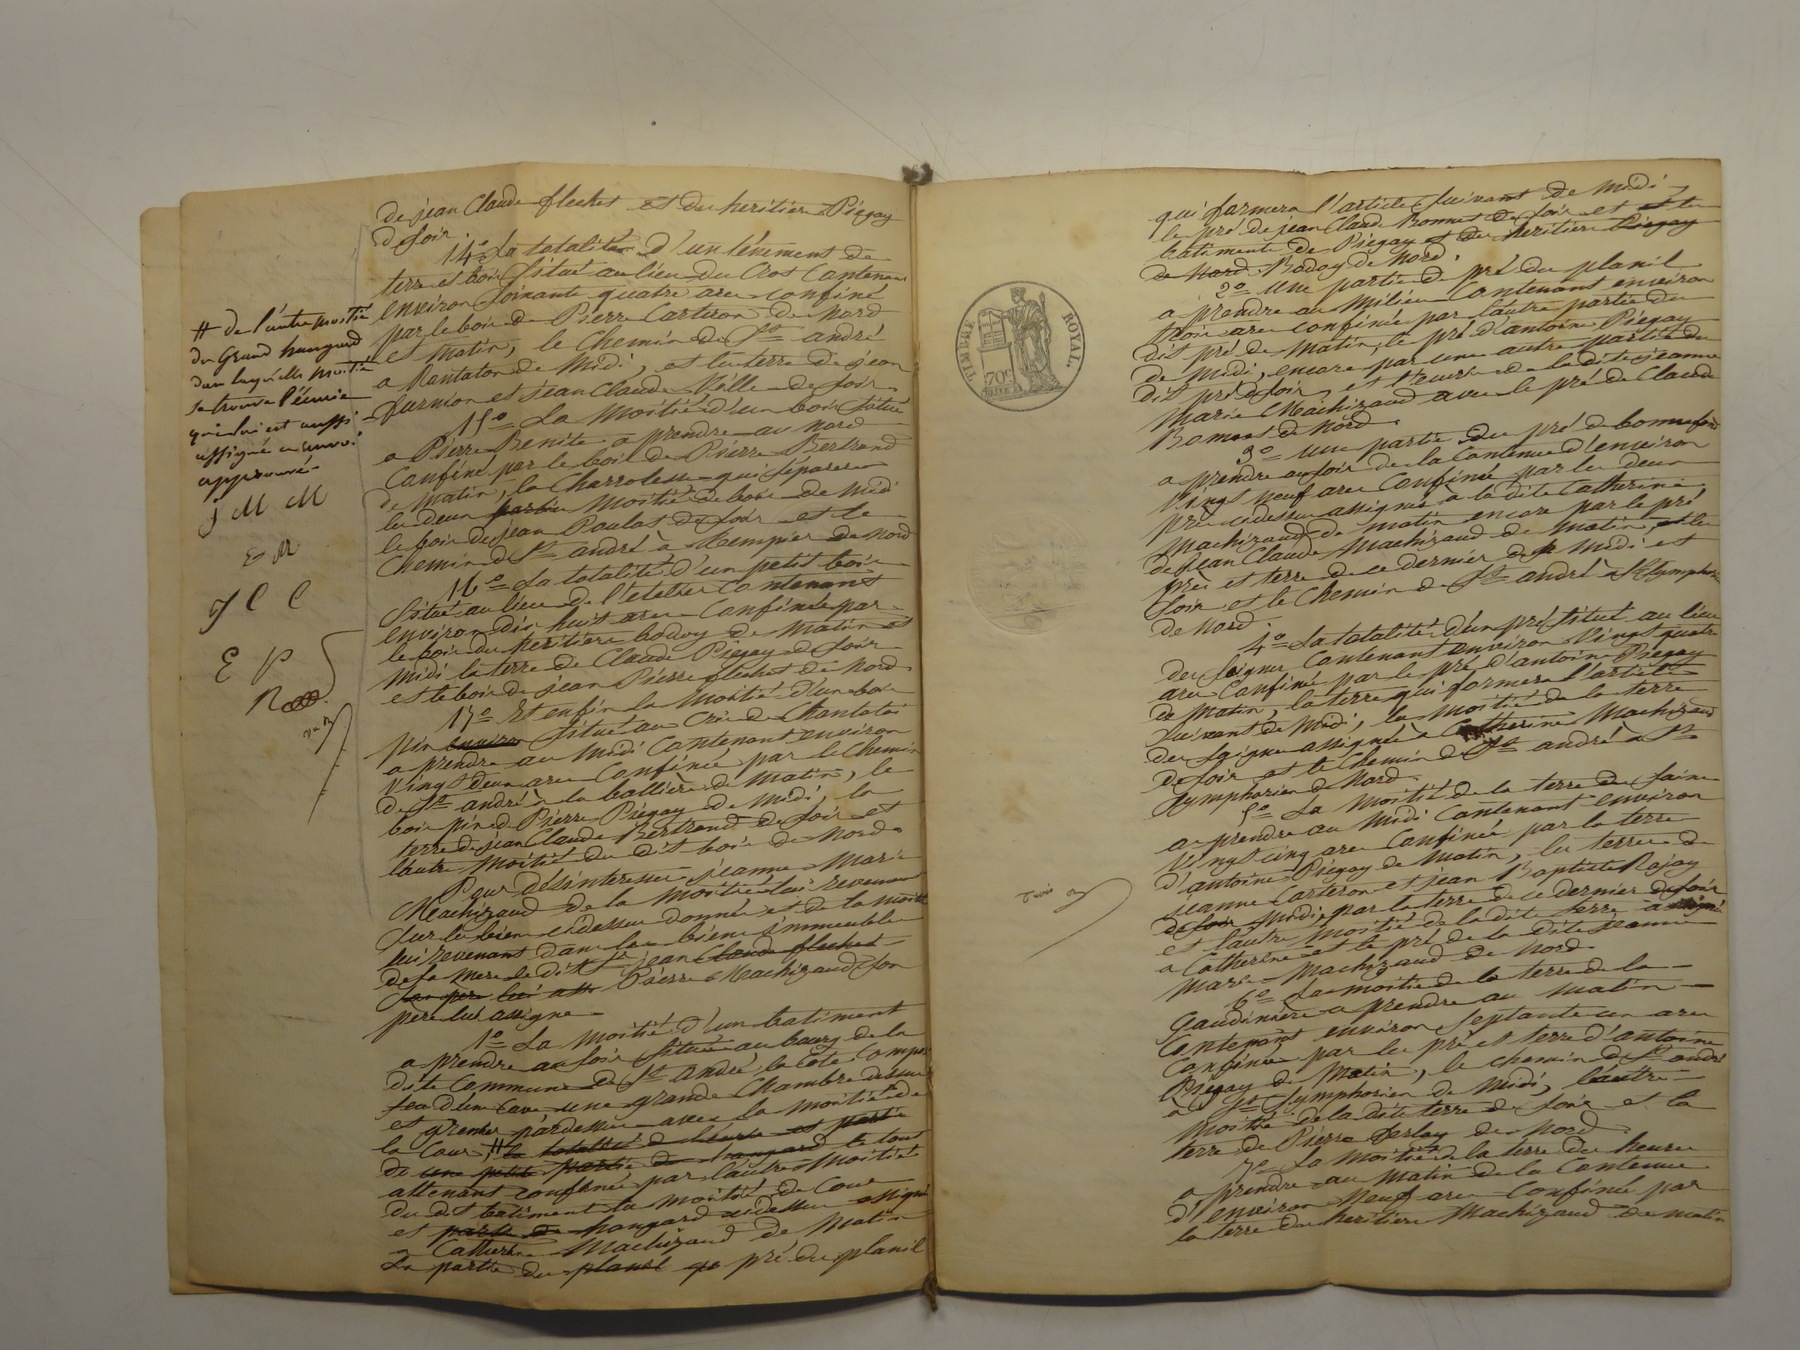 de jean Claude flechet et du heritiere Piegay
de soir.
14º La totalité d'un tènement de
terre et bois situé au lieu du Cros Contenant
environ soixante quatre are confiné
par le bois de Pierre Carteron de nord
et matin, le Chemin de St andré
a Rantalon de Midi, et la terre de jean
furnion et jean Claude Ville de soir.
15º La Moitié d'un bois situé
a Pierre Benite a prendre au nord
Confiné par le bois de Pierre Bertrand
de matin, la Charrolesse qui séparera
les deux partie Moitié de bois de Midi
le bois de jean Poulat de soir et le
Chemin de St andré à Rempier de nord
16º La totalité d'un petit bois
situé au lieu de l'etelier Contenant
environ dix huit are Confinée par
le bois du heritiere boudoy de Matin et
Midi la terre de Claude Piegay de soir
et le bois de jean Pierre flechet de nord.
17º Et enfin la Moitié d'un bois
pin environ situé au Crêt de Chantatoi
a prendre au midi Contenant environ
Vingt deux are Confinée par le Chemin
de St andré à la ballière de Matin, le
bois pin de Pierre Piégay de Midi, la
terre de jean Claude Bertrand de soir et
l'autre Moitié du dit bois de Nord.
Pour désinteresser jeanne Marie
Machizaud de la moitié lui revenant
sur les biens cidessus donnés et de la moitié
lui revenant dans les biens immeubles
de sa mere le dit Sr jean Claude flechet
son pere lui assi Pierre Machizaud son
pere lui assigne
1º La Moitié d'un batiment
a prendre au soir situé au bourg de la
dite Commune de St André, le Coté Compo
sea d'une Cave une grande Chambre dessus
et grenier pardessus avec la moitié de
la Cour, # la totalité d'écurie et part
de une petite partie de hangard le tout
attenant confinée par l'autre Moitié
du dit batiment la moitié de Cour
et partie de hangard cidessus assigné
a Catherine Machizaud de Matin
la partie du planil qu pré du planil
# de l'autre moitié
du Grand hangard
dans laquelle moitié
se trouve l'écurie
qui lui est aussi
assigné en envoi
approuvé
J M M
E M
J C C
E P
R
qui formera l'article suivant de Midi
le pré de jean Claude Bonnet de soir et et le
batiments de Piegay et du heritiere Piegay
de Nord Bodoy de Nord.
2º Une partie de pré du planil
a prendre au Milieu Contenant environ
trois are confinée par l'autre partie du
dit pré de Matin, le pré d'antoine Piegay
de Midi, encore par une autre partie du
dit pré de soir, et l'écurie de la dite jeanne
Marie Machizaud avec le pré de Claude
Bonnet de Nord.
3º Une partie du pré de bonnefon
a prendre au soir de la Contenue d'environ
Vingt neuf are Confinée par les deux
pré cidessus assignés a la dite Catherine
Machizaud de matin encore par le pré
de jean Claude Machizaud de matin et le
pré et terre de ce dernier de Midi et
soir et le Chemin de St andré a St Symphor
de nord.
4º La totalité d'un pré situé au lieu
des saignes Contenant environ Vingt quatre
are Confiné par le pré d'antoine Piegay
de Matin, la terre qui formera l'article
suivant de Midi, la Moitié de la terre
des saignes assignée a Catherine Machizaud
de soir et le Chemin de St andré à St
Symphorien de Nord.
5º La Moitié de la terre des saine
a prendre au Midi Contenant environ
Vingt cinq are Confinée par la terre
d'antoine Piegay de Matin, les terres de
jeanne Carteron et jean Baptiste Rajay
de soir Midi, par la terre de ce dernier de soir
et l'autre moitié de la dite terre assigné
a Catherine et le pré de la dite jeanne
Marie Machizaud de Nord.
6º La moitié de la terre de la
Gaudinière a prendre au Matin
Contenant environ septante un are
Confinée par les pré et terre d'antoine
Piégay de Matin, le chemin de St andré
a St Symphorien de Midi, l'autre
Moitié de la dite terre de soir et la
terre de Pierre Ferlay de Nord.
7º La Moitié de la terre du heurer
a prendre au Matin de la Contenue
d'environ Neuf are Confinée par
la terre du heritiere Machizaud de matin
TIMBRE ROYAL.
70c